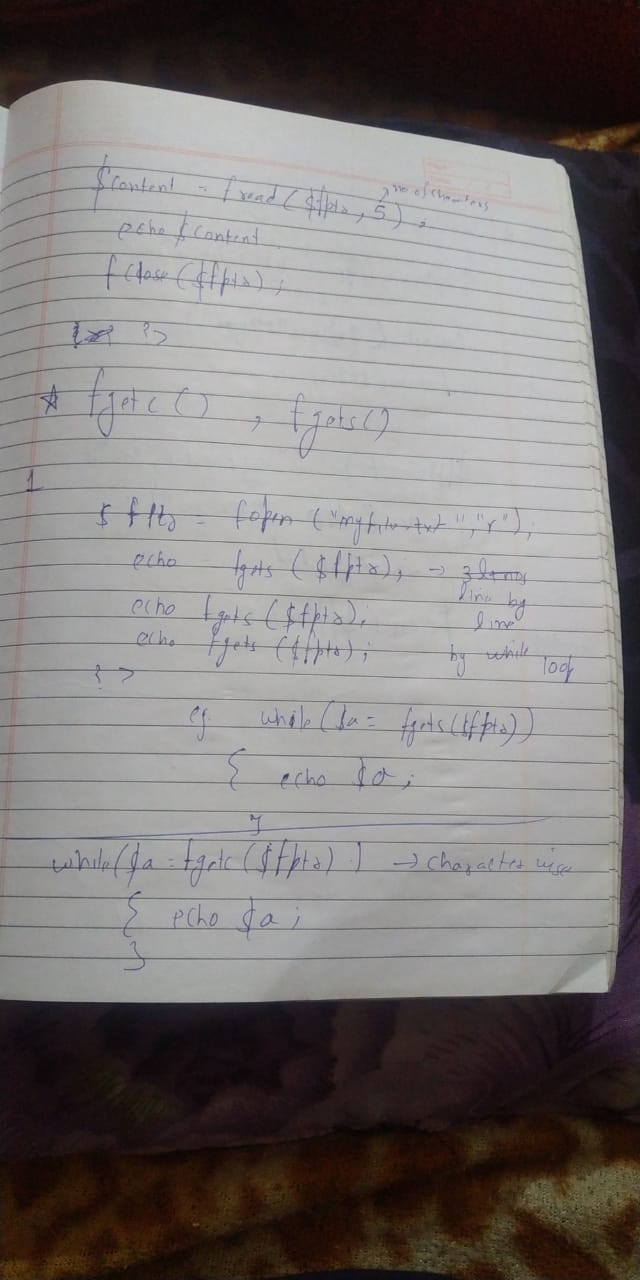 $content = fread($fptr, 5); → no of characters
echo $content
fclose($fptr);
?>
☆ fgetc() , fgets()
1
$fptr = fopen ("myfile.txt", "r");
echo fgets ($fptr); → 3 lines
line by
echo fgets ($fptr); line
echo fgets ($fptr); by while loop
? >
eg. while($a = fgets($fptr))
{ echo $a;
}
while($a = fgetc($fptr)) → character wise
{ echo $a;
}